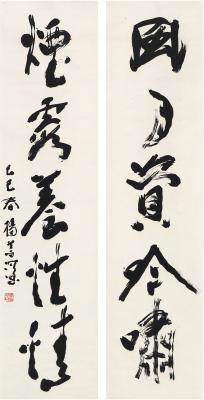 風月吟嘯
煙霞養性情
己巳春楊善深